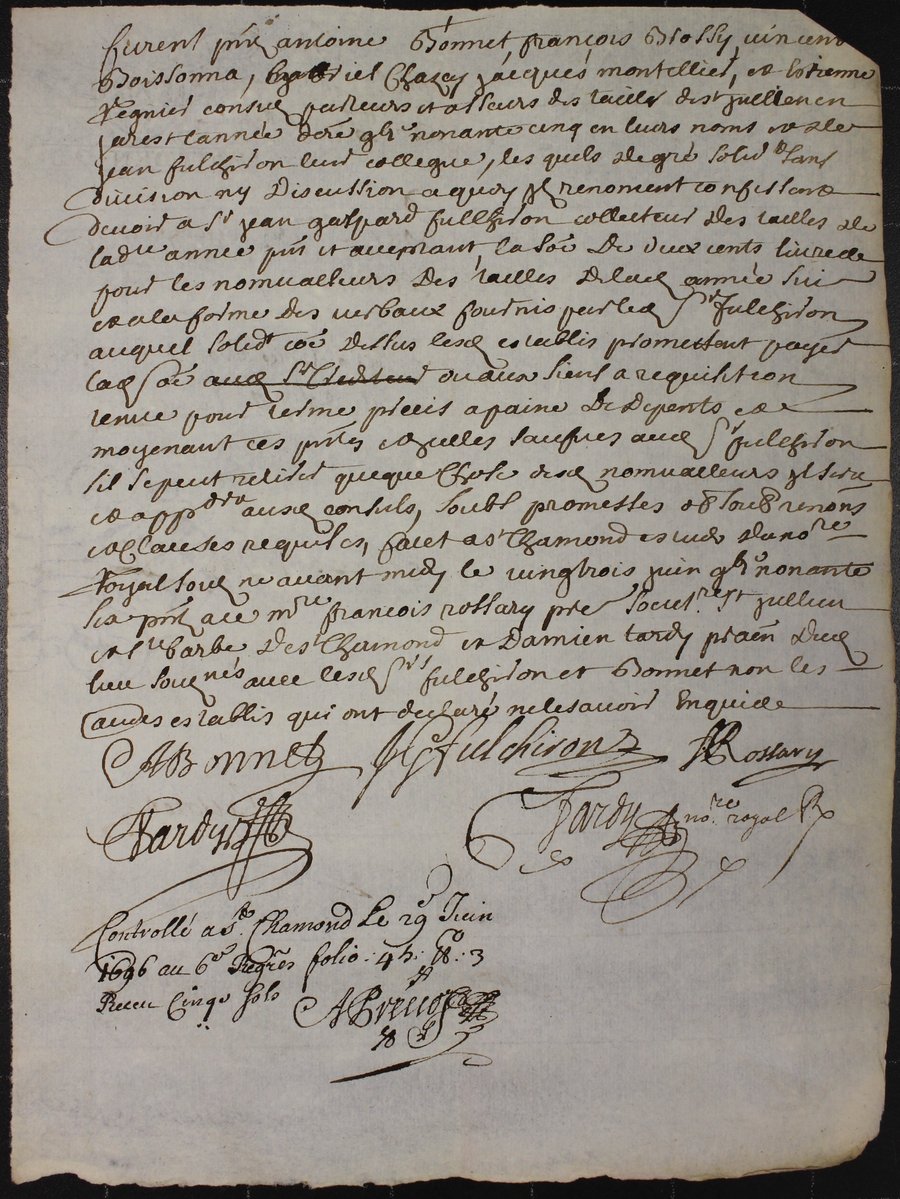 furent pnt antoine Bonnet, françois Blossy, vincent
Boissonna, gabriel Chazy jacques montellier, et Estienne
Regnier consulz perreurs et asseurs des tailles de st jullien en
jarest l'année dere gbre nonante cinq en leurs noms et de
jean fulchiron leur collegue, les quels de gré solidt sans
division ny discussion a quoy jl renoncent confessent
devoir a sr jean gaspard fullchiron collecteur des tailles de
lad annee pnt et acceptant, la soe De deux cents livres de
pour les nomvalleurs Des tailles de lad année sui
et a la forme des verbaux fournis par led sr fulchiron
auquel solidt coe dessus lesd establis promettent payer
lad soe aud sr ou aux siens a requisition
venue pour terme precis a paine De Depents et
moyenant ces pntes et icelles saufves aud sr fulchiron
sil se peut retirer queque chose desd nomvalleurs jl sera
et appdra ausd consuls, soubt promesses obt soub renons
et clauses requises, faict a st Chamond estude du nore
Royal soue ne avant midy le vingtrois juin gbre nonante
six pnt a ce mre françois rossary pre societre st jullien
et ste barbe De st Chamond et Damien tardy praen dud
lieu sougnés avec lesd srs fulchiron et Bonnet non les
aude establis qui ont declaré ne le savoir Enquis
ABonnet JG fulchiron Rossary
Tardy Tardy nore royal R
Controllé a st Chamond Le 29e Juin
1696 au 6e Regres folio: 45: : 3
Receu Cinqe sols